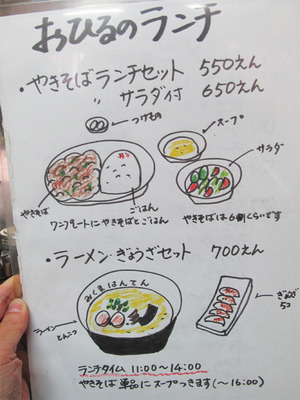 おひるのランチ
・やきそばランチセット 550えん
〃 サラダ付 650えん
つけもの
スープ
サラダ
やきそば
ごはん
ワンプレートにやきそばとごはん
やきそばは6割くらいです
・ラーメン・ぎょうざセット 700えん
みくまはんてん
ぎょうざ
5コ
ラーメン
とんこつ
ランチタイム 11:00〜14:00
やきそば単品にスープつきます(〜16:00)